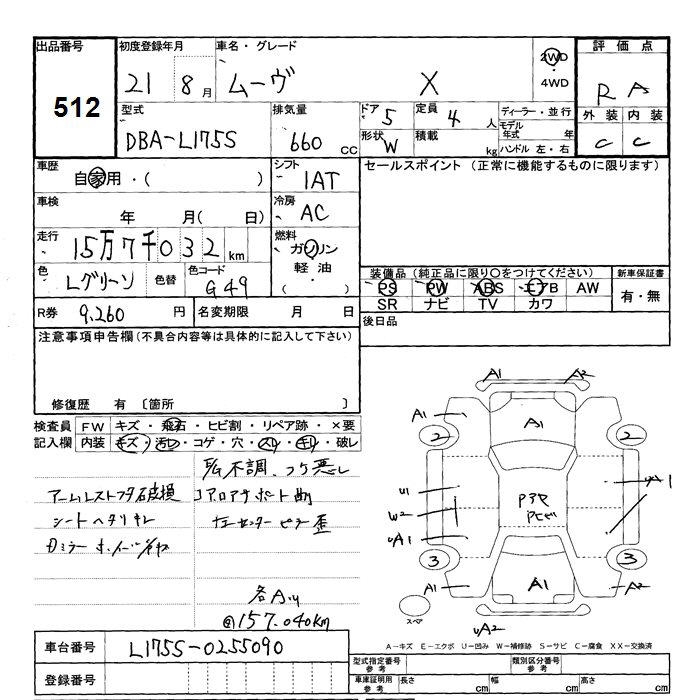 出品番号 初度登録年月 車名・グレード 2WD 評価点
512 21 8月 ムーヴ X 4WD RA
型式 排気量 ドア 5 定員 4人 ディーラー・並行 外装 内装
DBA-L175S 660 CC 形状 W 積載 kg モデル年式 年 C C
ハンドル 左・右
車歴 シフト セールスポイント (正常に機能するものに限ります)
自家用・( ) IAT
車検 冷房
年 月( 日) AC
走行 燃料
15万7千032 km ガソリン
色 色替 色コード 軽油・ 装備品 (純正品に限り○をつけてください) 新車保証書
Lグリーン G49 ( ) PS PW ABS エアB AW 有・無
SR ナビ TV カワ
R券 9,260 円 名変期限 月 日 後日品
注意事項申告欄(不具合内容等は具体的に記入して下さい)
修復歴 有 〔箇所 〕
検査員 FW キズ・飛石・ヒビ割・リペア跡・×要
記入欄 内装 キズ・汚レ・コゲ・穴・スレ・キレ・破レ
不調、つき悪し
アームレストフタ破損
シートヘタリ キレ
センターピラー歪
各A
@157,040km
A1 A2
A1 A1
2 2
U1 A1
W2
A1
3 3
A1 A1 A2
スペア A2
車台番号 L175S-0255090
A-キズ E-エクボ U-凹み W-補修跡 S-サビ C-腐食 XX-交換済
登録番号 型式指定番号 参考 類別区分番号 参考
車庫証明用 参考 長さ cm 幅 cm 高さ cm